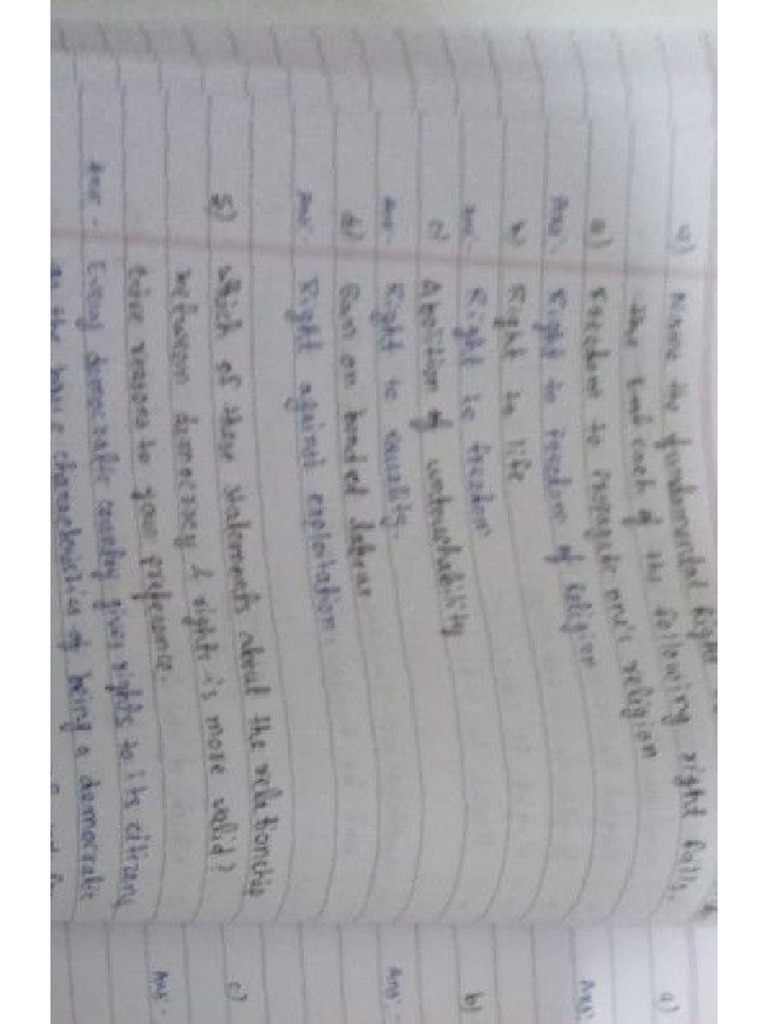 4) Name the fundamental Right
the each of the following right falls.
a) Freedom to propagate one's religion
Ans:- Right to freedom of religion
b) Right to life
Ans:- Right to freedom
c) Abolition of untouchability
Ans:- Right to equality.
d) Ban on bonded labour
Ans:- Right against exploitation.
5) which of these statements about the relationship
between democracy & rights is more valid?
Give reasons to your preference.
Ans:- Every democratic country gives rights to its citizens
characteristics of being a democratic
a)
Ans:-
b)
Ans:-
c)
Ans:-